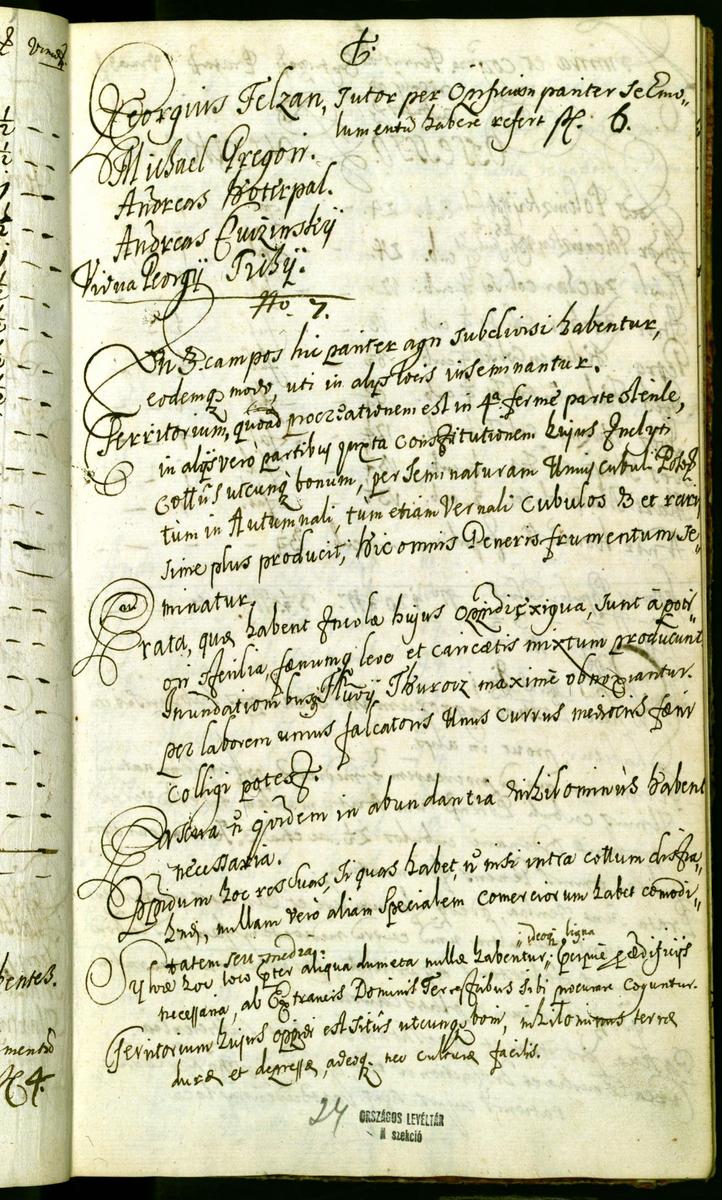 6.
Georgius Felzan, Sutor per Opificium pariter se Emo„
lumentū habere refert fl. 6.
Michael Gregori.
Andreas Hoterpal.
Andreas Cvizinskÿ
Vidua Georgÿ Trskÿ.
No. 7.
In 3. campos hic pariter agri subdivisi habentur,
eodemq modo, uti in alÿs locis inseminantur.
Territorium, quoad procreationem est in 4ta fermè parte sterile,
in alÿs verò partibus juxta Constitutionem hujus Inclyti
Cottūs utcunq bonum, per seminaturam Unius Cubuli Poson
tùm in Autumnali, tùm etiam Vernali Cubulos 3 et raris
sime plus producit, hic omnis Generis frumentum se„
minatur.
Prata, quæ habent Incolæ hujus Oppidi exiqua, sunt à poti„
ori sterilia, fænumq leve et caricetis mixtum producunt
Inundationibusq Fluvÿ Thurocz maximè obnoxiantur.
per laborem unius falcatoris Unus currus mediocris fæni
colligi potest.
Pascua n̄ quidem in abundantia nihilominùs habent
necessaria.
Oppidum hoc res suas, si quas habet, n̄ nisi intra cottum distra„
hndi, nullam verò aliam specialem comerciorum habet comodi„
tatem seu media.
Sylvæ hoc loco præter aliqua dumeta nullæ habentur, ideoq ligna pro ædificÿs
necessaria, ab Extraneis Dominis Terrestribus sibi procurare coguntur.
Territorium hujus oppidi est sitûs utcunq boni, nihilominus terræ
duræ et depressæ, adeoq nec culturæ facilis.
24
ORSZÁGOS LEVÉLTÁR
II szekció
bentes.
mentū
fl 4.